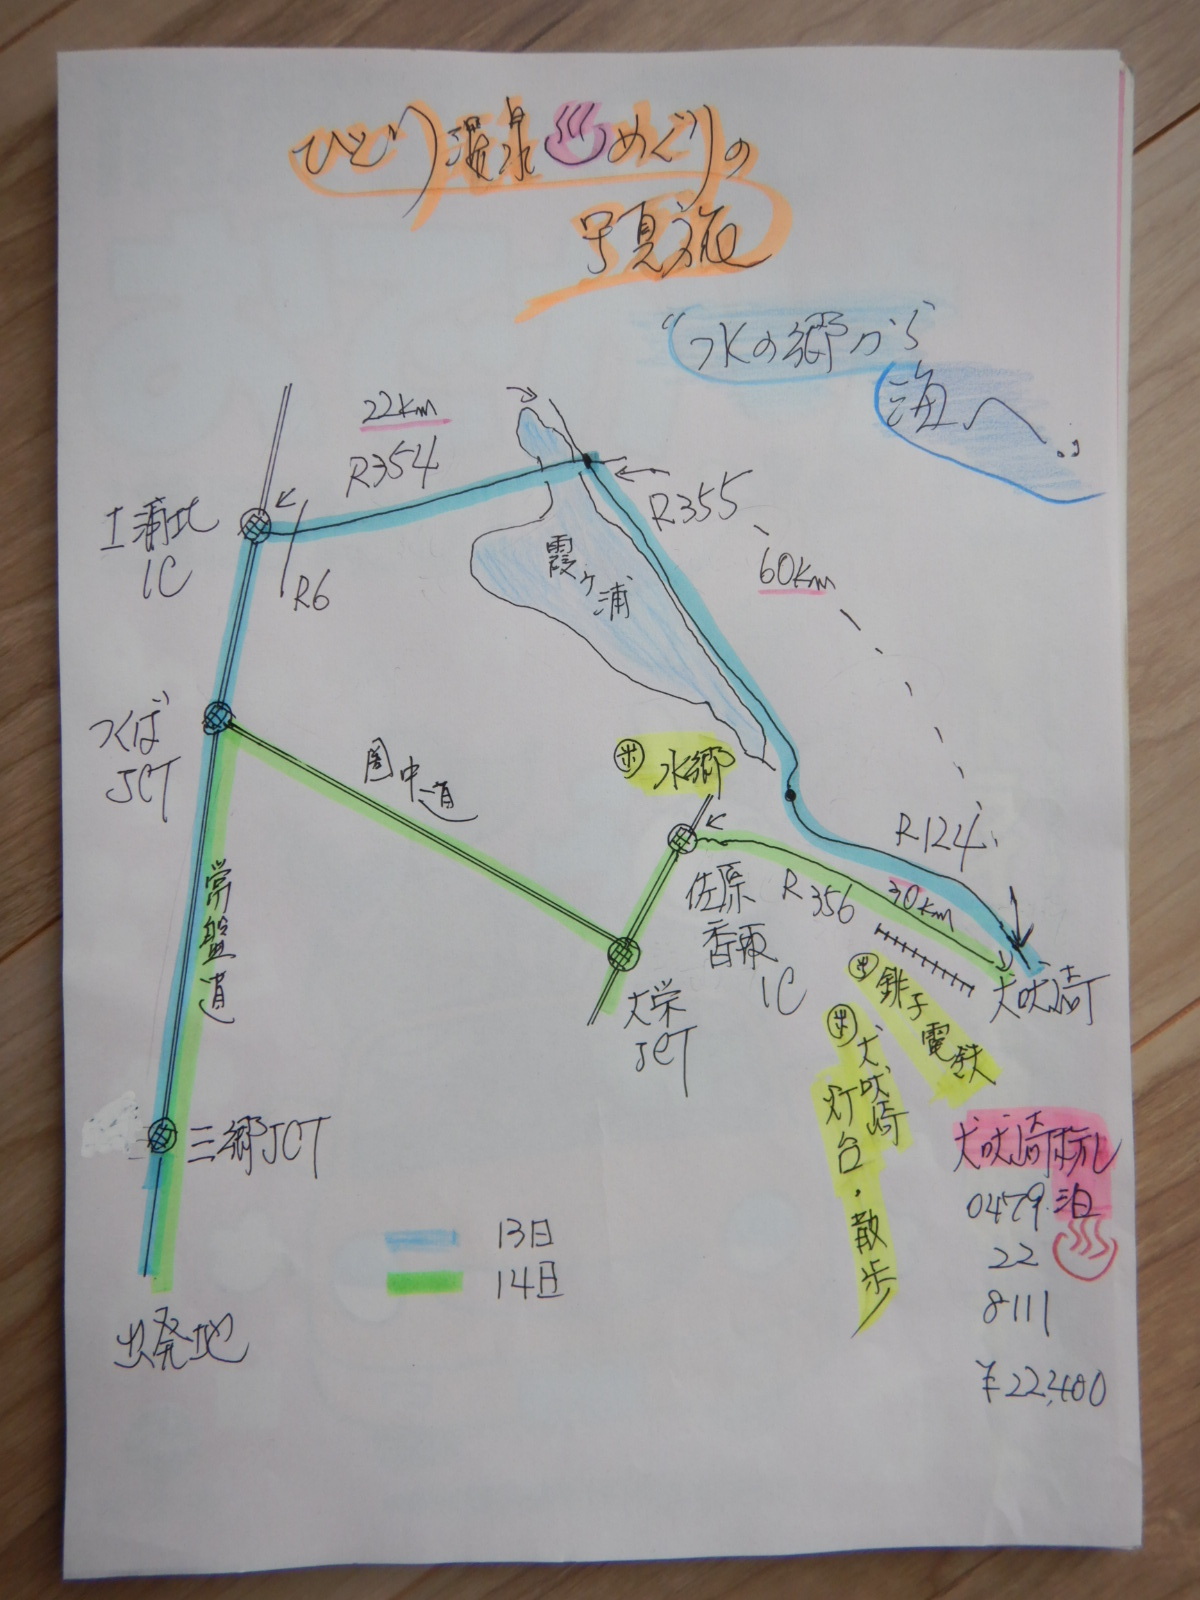 ひとり温泉♨めぐりの
予見旅
"水の郷から
海へ..
22km
R354
土浦北
IC
R6
R355
60km
霞ヶ浦
つくば
JCT
圏中道
水郷
R124
R356
30km
佐原
香取
IC
大栄
JCT
常盤道
犬吠崎
銚子電鉄
犬吠崎
灯台・散歩
三郷JCT
13日
14日
出発地
0479
泊
22
8111
¥22,400